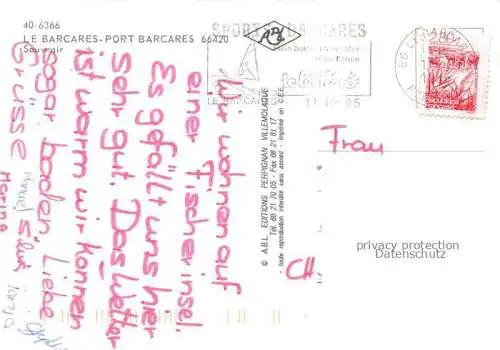 40-6366
LE BARCARES-PORT BARCARES 66420
Souvenir
SPORT BARCARES
LE BARCARES
11-10-95
Wir wohnen auf
einer Fischerinsel.
Es gefällt uns hier
sehr gut. Das Wetter
ist warm wir können
sogar baden. Liebe
Grüsse
Marina
© A.B.L. EDITIONS PERPIGNAN. VILLEMOLAQUE
Tél. 68 21 70 05 - Fax 68 21 81 17
toute reproduction interdite sans accord - Imprimé en C.E.E.
Frau
CH
privacy protection
Datenschutz